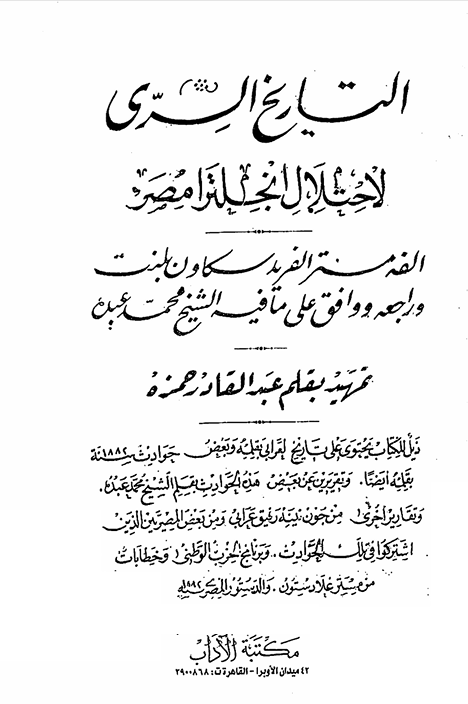 التاريخ السرى
لاحتلال انجلترا مصر
الفه مستر الفريد سكاون بلنت
وراجعه ووافق على ما فيه الشيخ محمد عبده
تمهيد بقلم عبد القادر حمزه
ذيل للكتاب يحتوى على تاريخ لعرابى بقلمه وبعض حوادث سنة ١٨٨٢
بقلمه أيضا. وتقريرين عن بعض هذه الحوادث بقلم الشيخ محمد عبده.
وتقارير أخرى من جون نينه رفيق عرابى ومن بعض المصريين الذين
اشتركوا فى تلك الحوادث. وبرنامج الحزب الوطنى وخطابات
من مستر غلادستون. والدستور المصرى سنة ١٨٨٢
مكتبة الآداب
٤٢ ميدان الأوبرا - القاهرة ت: ٣٩٠٠٨٦٨